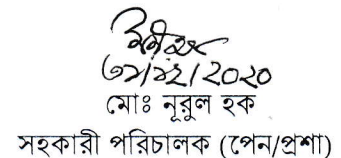 ৩১/১২/2020
মোঃ নূরুল হক
সহকারী পরিচালক (পেন/প্রশা)